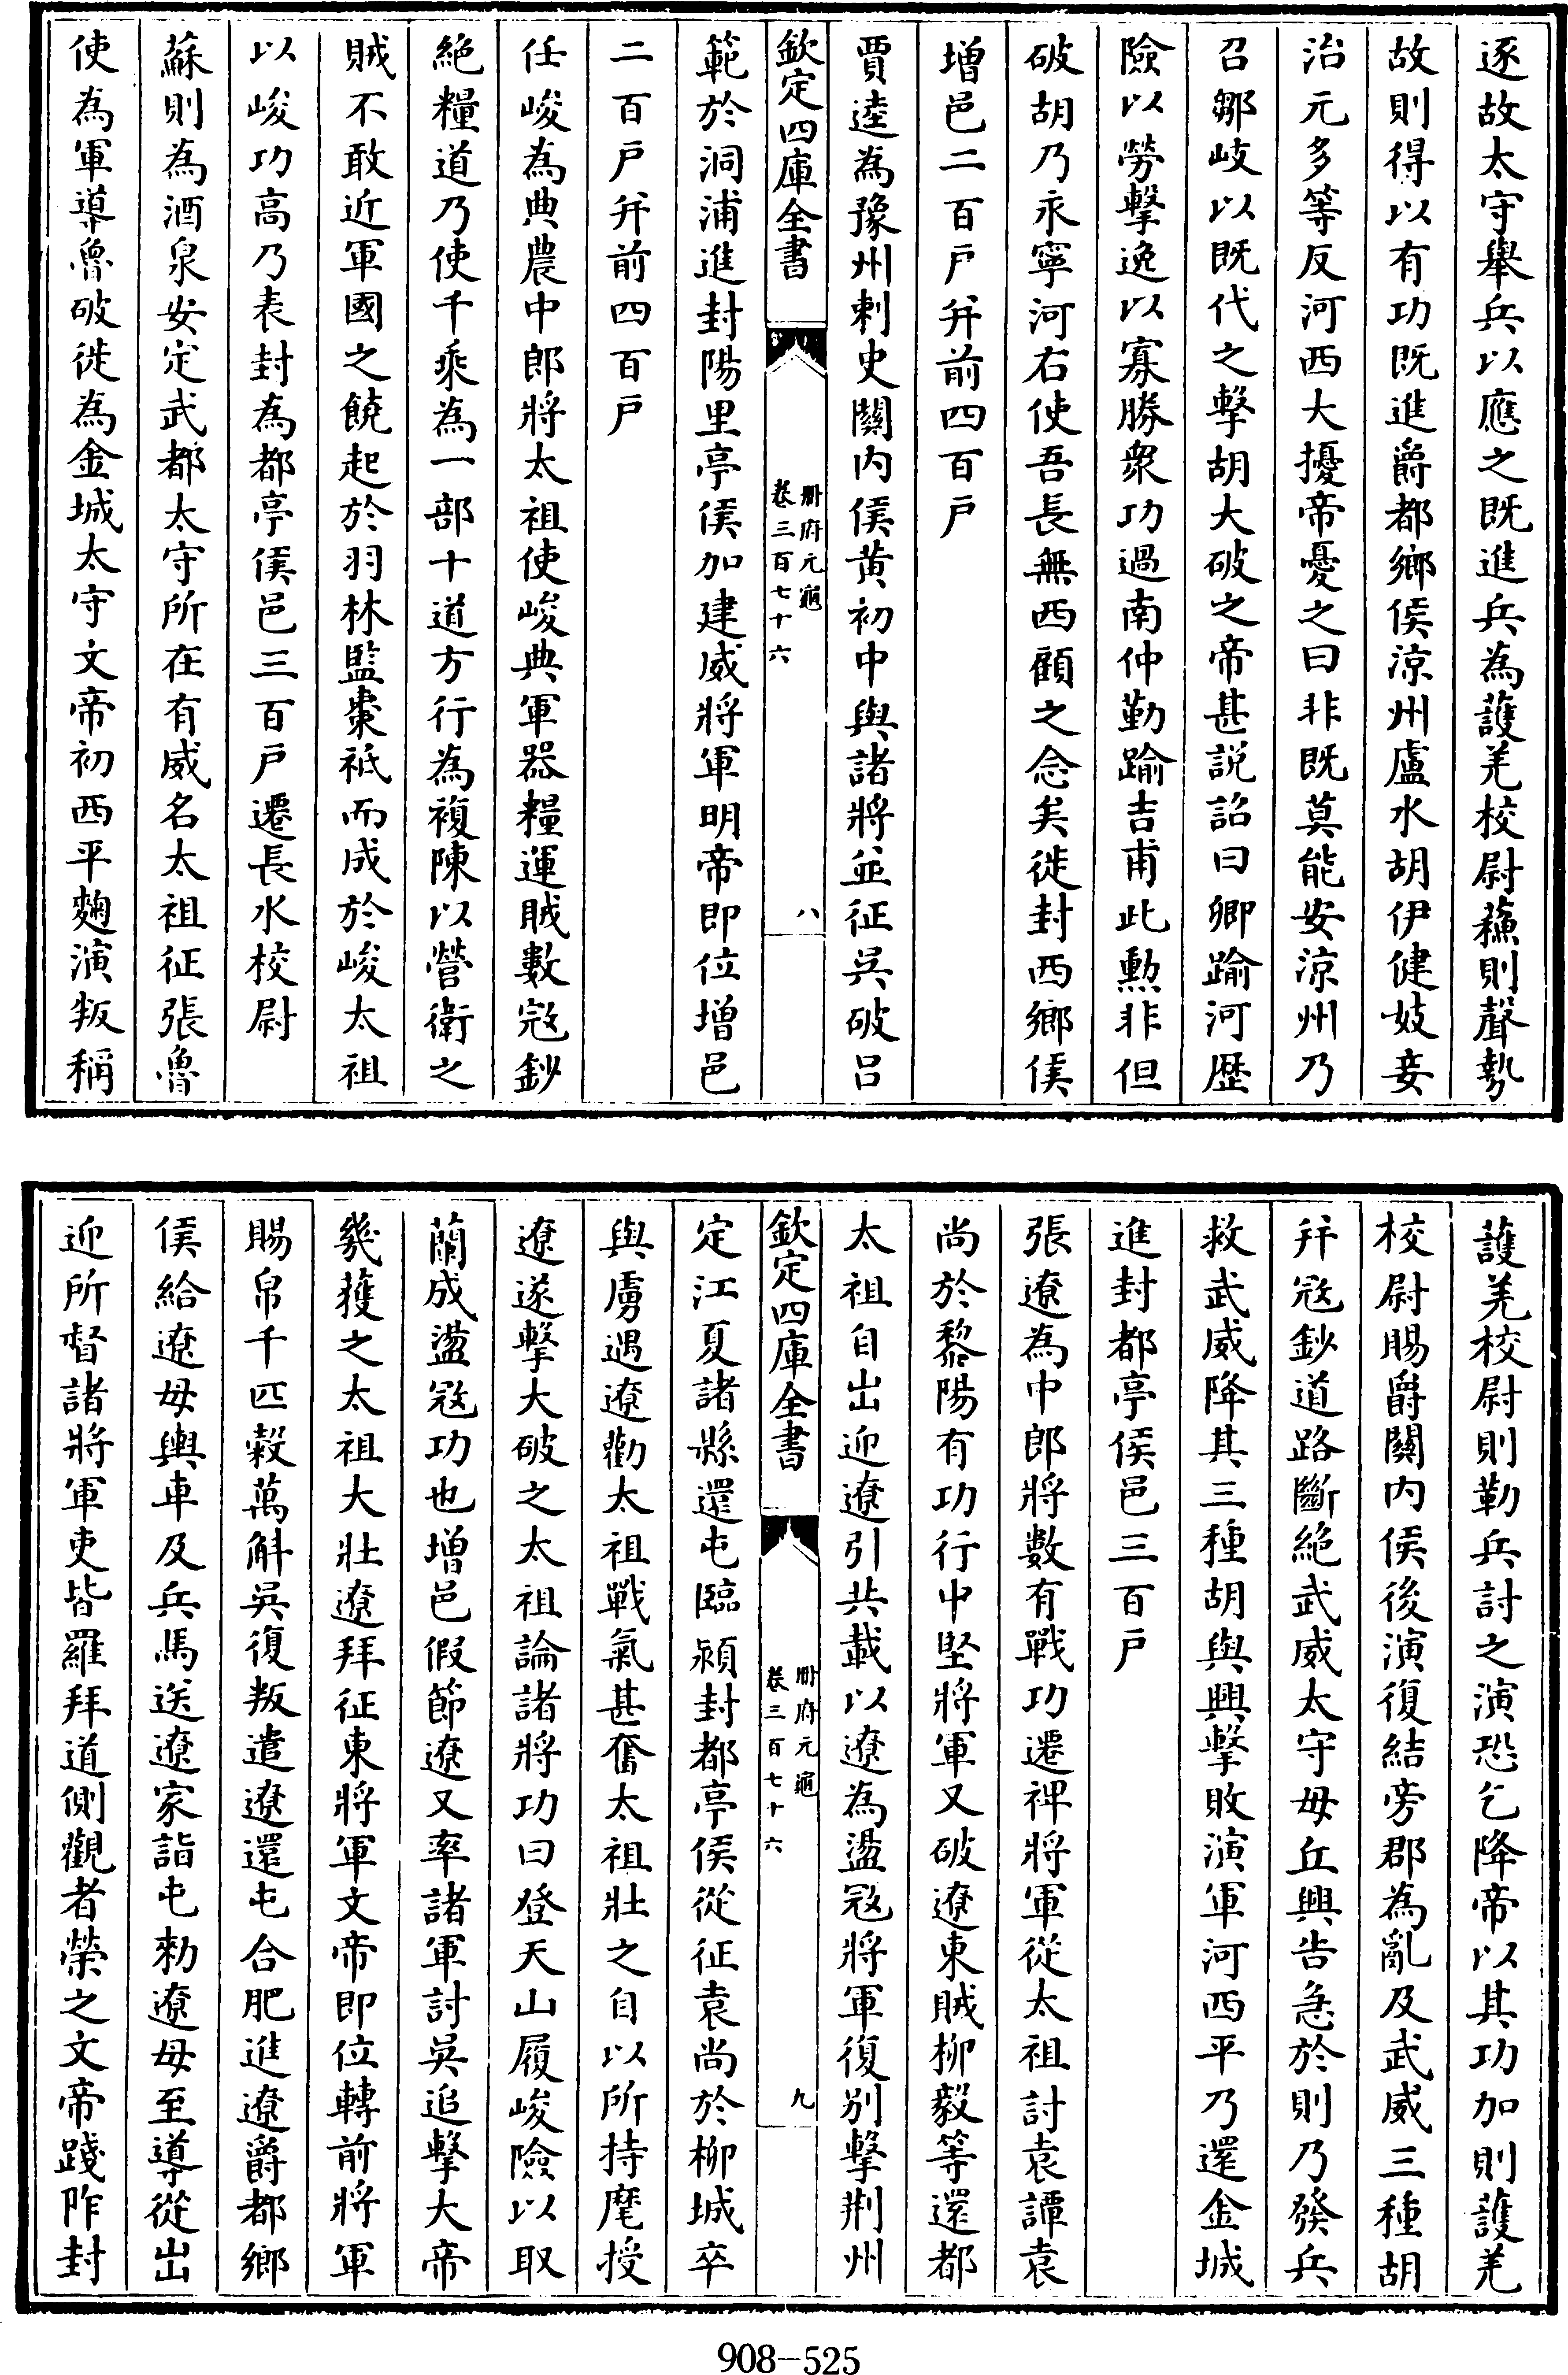 逐故太守舉兵以應之既進兵為䕶羌校尉蘓則聲勢
故則得以有功既進爵都鄉侯涼州盧水胡伊健妓妾
治元多等反河西大擾帝憂之曰非既莫能安涼州乃
召鄒岐以既代之擊胡大破之帝甚説詔曰卿踰河歴
險以勞擊逸以寡勝衆功過南仲勤踰吉甫此勲非但
破胡乃永寧河右使吾長無西顧之念矣徙封西鄉侯
増邑二百戸并前四百戸
賈逵為豫州刺史闗内侯黄初中與諸將並征吳破吕
欽定四庫全書
冊府元龜
卷三百七十六
八
範於洞浦進封陽里亭侯加建威將軍明帝即位增邑
二百戸并前四百戸
任峻為典農中郎將太祖使峻典軍器糧運賊數宼鈔
絶糧道乃使千乘為一部十道方行為複陳以營衛之
賊不敢近軍國之饒起於羽林監棗祗而成於峻太祖
以峻功高乃表封為都亭侯邑三百戸遷長水校尉
蘇則為酒泉安定武都太守所在有威名太祖征張魯
使為軍導魯破徙為金城太守文帝初西平麴演叛稱
䕶羌校尉則勒兵討之演恐乞降帝以其功加則䕶羌
校尉賜爵闗内侯後演復結旁郡為亂及武威三種胡
并宼鈔道路斷絶武威太守毋丘興告急於則乃發兵
救武威降其三種胡與興擊敗演軍河西平乃還金城
進封都亭侯邑三百戸
張遼為中郎將數有戰功遷禆將軍從太祖討袁譚袁
尚於黎陽有功行中堅將軍又破遼東賊柳毅等還都
太祖自出迎遼引共載以遼為盪宼將軍復别擊荆州
欽定四庫全書
冊府元龜
卷三百七十六
九
定江夏諸縣還屯臨潁封都亭侯從征袁尚於柳城卒
與虜遇遼勸太祖戰氣甚奮太祖壯之自以所持麾授
遼遂擊大破之太祖論諸將功曰登天山履峻險以取
蘭成盪宼功也增邑假節遼又率諸軍討吳追擊大帝
幾獲之太祖大壯遼拜征東將軍文帝即位轉前將軍
賜帛千匹榖萬斛吳復叛遣遼還屯合肥進遼爵都鄉
侯給遼母輿車及兵馬送遼家詣屯勑遼母至導從出
迎所督諸將軍吏皆羅拜道側觀者榮之文帝踐阼封
908-525